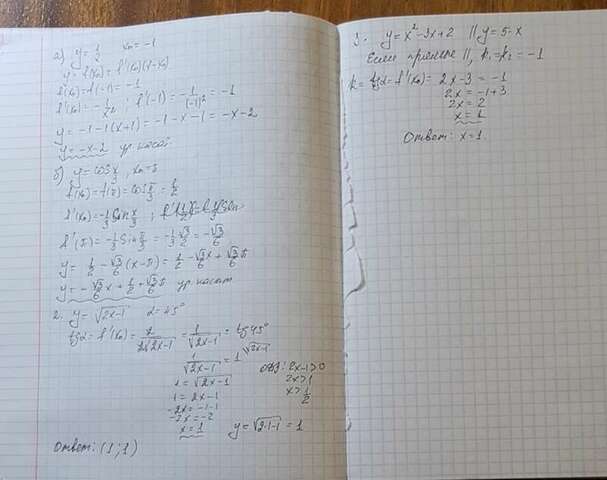 а) y = 1/x   x₀ = -1
y = f(x₀) + f'(x₀)(x-x₀)
f(x₀) = f(-1) = -1
f'(x₀) = -1/x² ; f'(-1) = -1/(-1)² = -1
y = -1-1(x+1) = -1-x-1 = -x-2
y = -x-2 ур. касат.
б) y = cos x/3 , x₀ = π
f(x₀) = f(π) = cos π/3 = 1/2
f'(x₀) = -1/3 sin x/3 ;
f'(π) = -1/3 sin π/3 = -1/3 √3/2 = -√3/6
y = 1/2 - √3/6 (x-π) = 1/2 - √3/6 x + √3/6 π
y = -√3/6 x + 1/2 + √3/6 π ур касат
2. y = √2x-1   α = 45°
tgα = f'(x₀) = 2/2√2x-1 = 1/√2x-1 = tg45°
1/√2x-1 = 1 √2x-1
1 = √2x-1   ОДЗ: 2x-1>0
1 = 2x-1   2x>1
-2x = -1-1   x> 1/2
-2x = -2
x = 1   y = √2·1-1 = 1
Ответ: (1; 1)
3. y = x²-3x+2 || y = 5-x
Если прямые ||, k₁=k₂ = -1
k = tgα = f'(x₀) = 2x-3 = -1
2x = -1+3
2x = 2
x = 1
Ответ: x = 1.